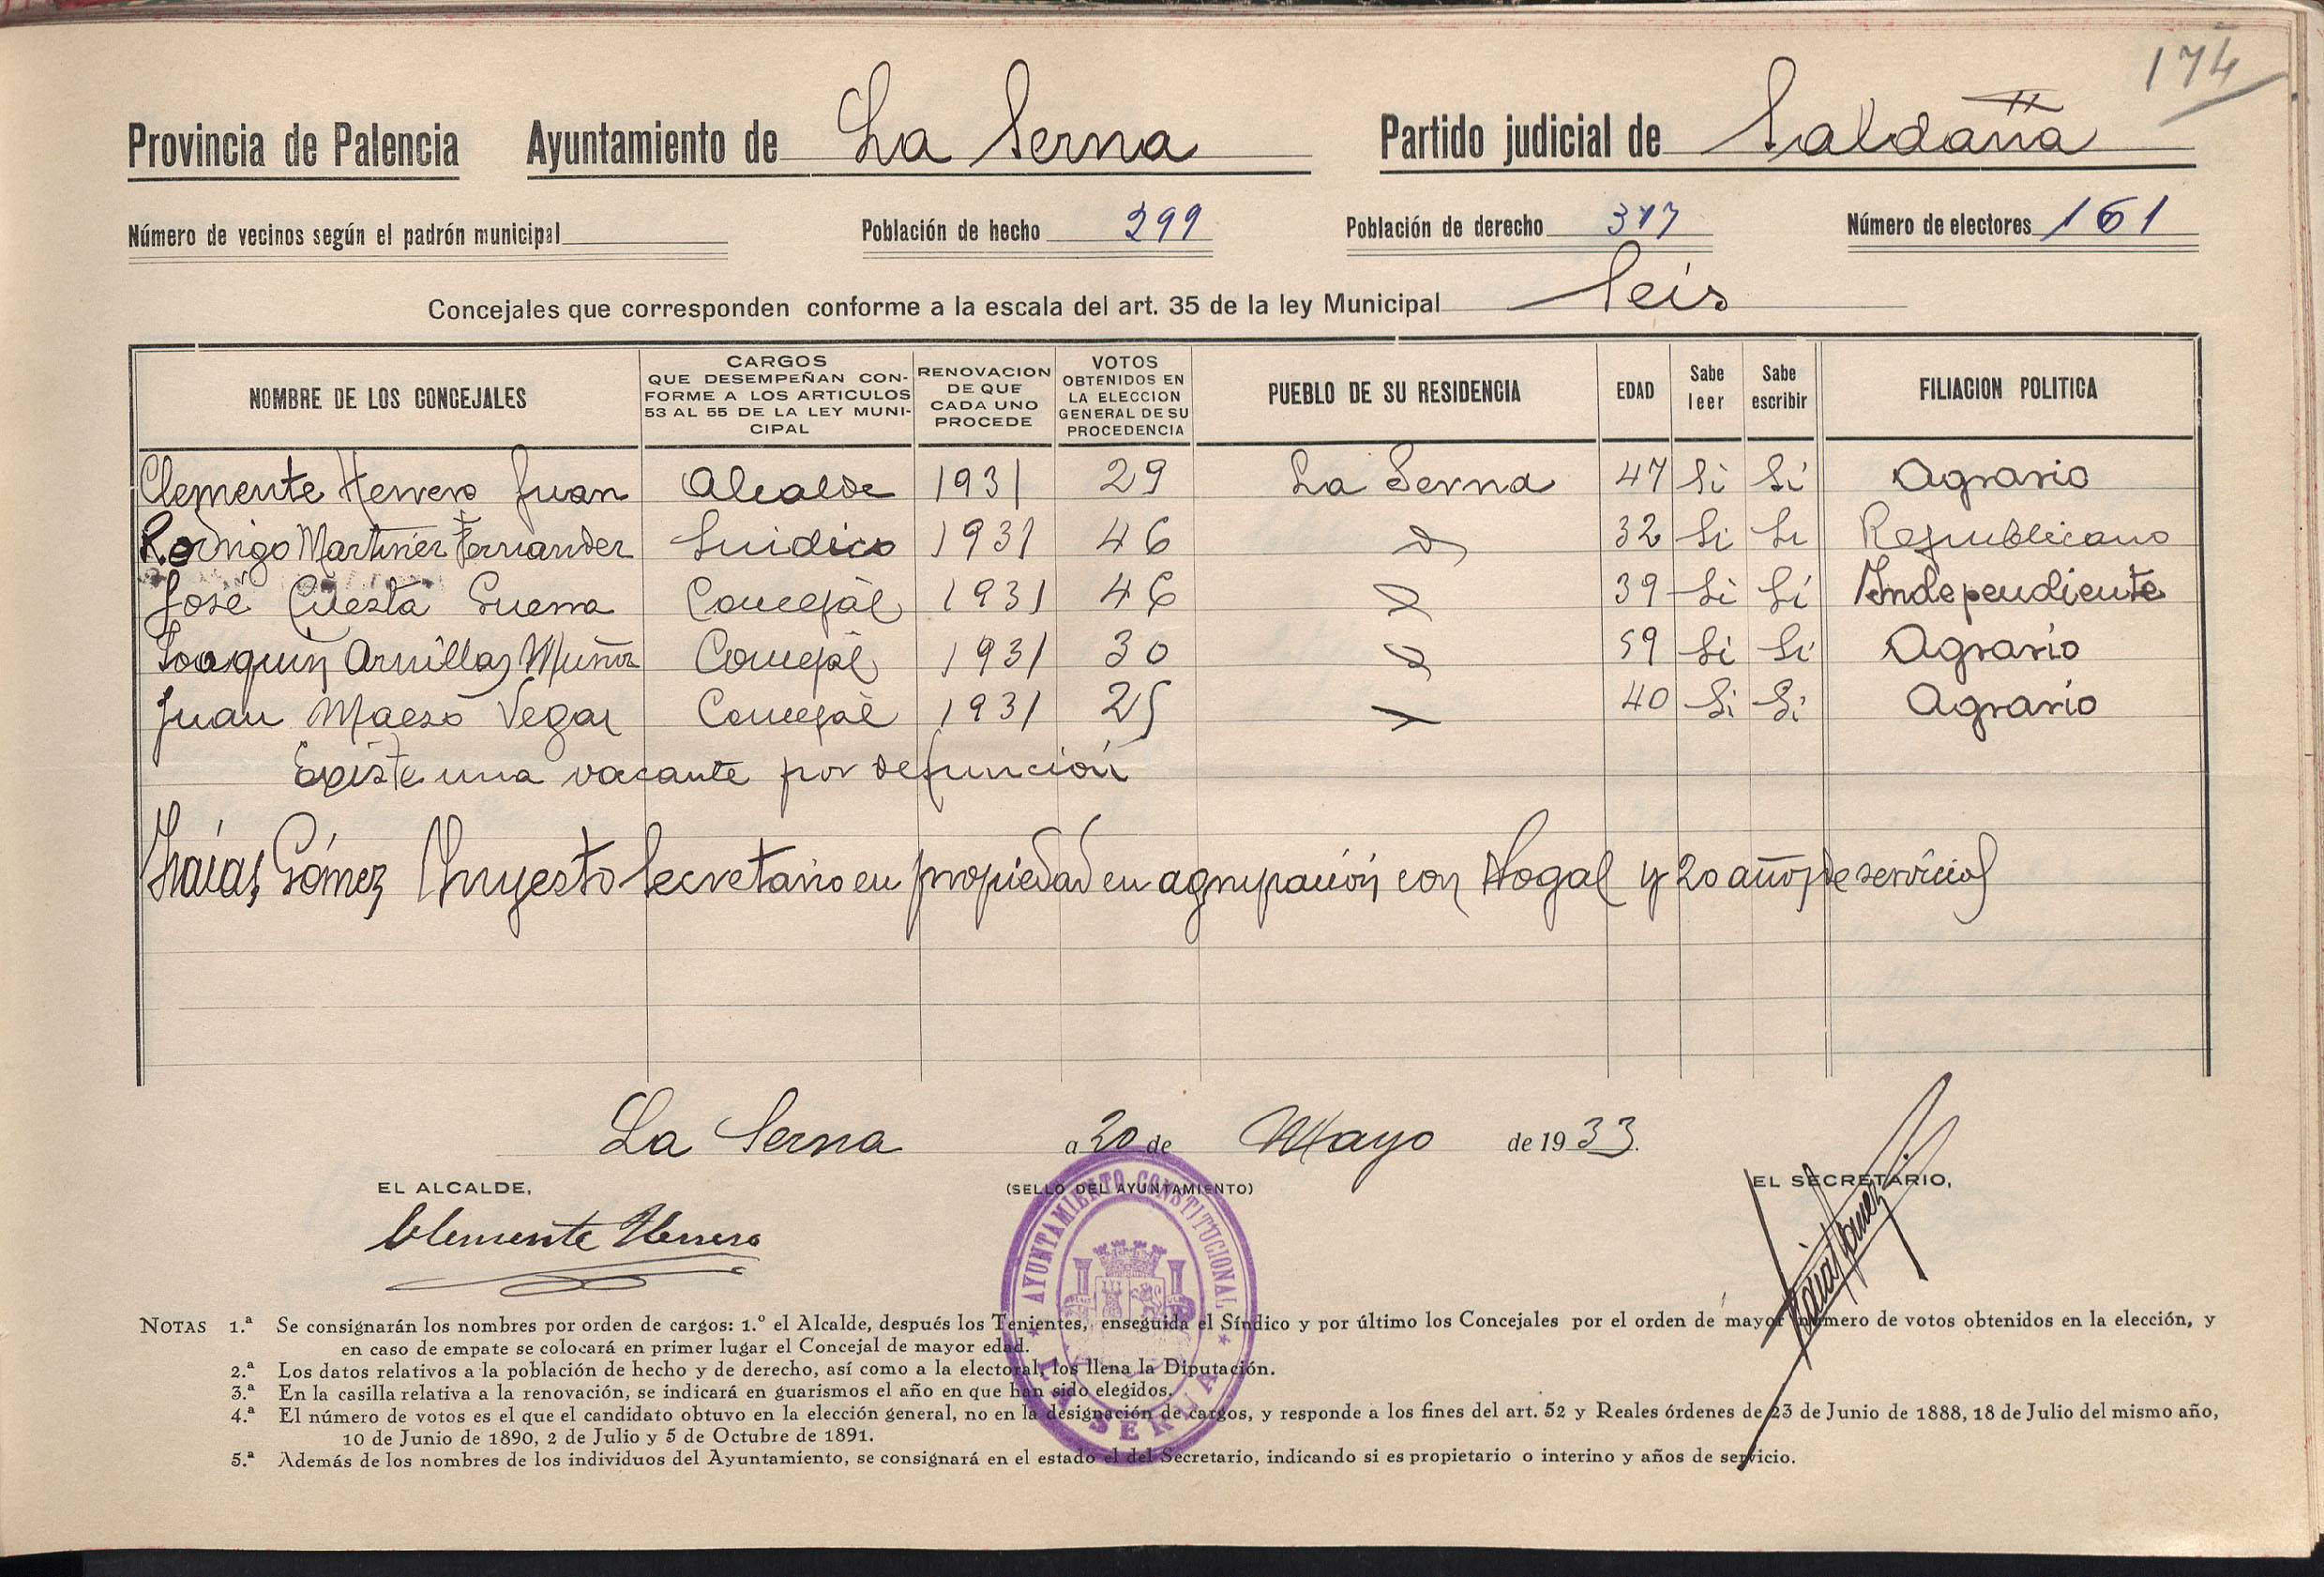 174
Provincia de Palencia Ayuntamiento de La Serna Partido judicial de Saldaña
Número de vecinos según el padrón municipal Población de hecho 299 Población de derecho 317 Número de electores 161
Concejales que corresponden conforme a la escala del art. 35 de la ley Municipal Seis
NOMBRE DE LOS CONCEJALES CARGOS QUE DESEMPEÑAN CONFORME A LOS ARTICULOS 53 AL 55 DE LA LEY MUNICIPAL RENOVACION DE QUE CADA UNO PROCEDE VOTOS OBTENIDOS EN LA ELECCION GENERAL DE SU PROCEDENCIA PUEBLO DE SU RESIDENCIA EDAD Sabe leer Sabe escribir FILIACION POLITICA
Clemente Herrero Juan Alcalde 1931 29 La Serna 47 Si Sí Agrario
Rodrigo Martínez Fernandez Suidico 1931 46 32 Si Si Republicano
José Cuesta Guerra Concejal 1931 46 39 Si Sí Independiente
Joaquín Arnillas Muñoz Concejal 1931 30 59 Si Si Agrario
Juan Maeso Vegas Concejal 1931 25 40 Si Si Agrario
Existe una vacante por defunción
Isaías Gómez Secretario en propiedad en agrupación con Nogal y 20 años de servicios
La Serna a 20 de Mayo de 1933.
EL ALCALDE, (SELLO DEL AYUNTAMIENTO) EL SECRETARIO,
Clemente Herrero
Isaias Gómez
AYUNTAMIENTO CONSTITUCIONAL * LA SERNA *
NOTAS 1.ª Se consignarán los nombres por orden de cargos: 1.º el Alcalde, después los Tenientes, enseguida el Síndico y por último los Concejales por el orden de mayor número de votos obtenidos en la elección, y
en caso de empate se colocará en primer lugar el Concejal de mayor edad.
2.ª Los datos relativos a la población de hecho y de derecho, así como a la electoral, los llena la Diputación.
3.ª En la casilla relativa a la renovación, se indicará en guarismos el año en que han sido elegidos.
4.ª El número de votos es el que el candidato obtuvo en la elección general, no en la designación de cargos, y responde a los fines del art. 52 y Reales órdenes de 23 de Junio de 1888, 18 de Julio del mismo año,
10 de Junio de 1890, 2 de Julio y 5 de Octubre de 1891.
5.ª Además de los nombres de los individuos del Ayuntamiento, se consignará en el estado el del Secretario, indicando si es propietario o interino y años de servicio.